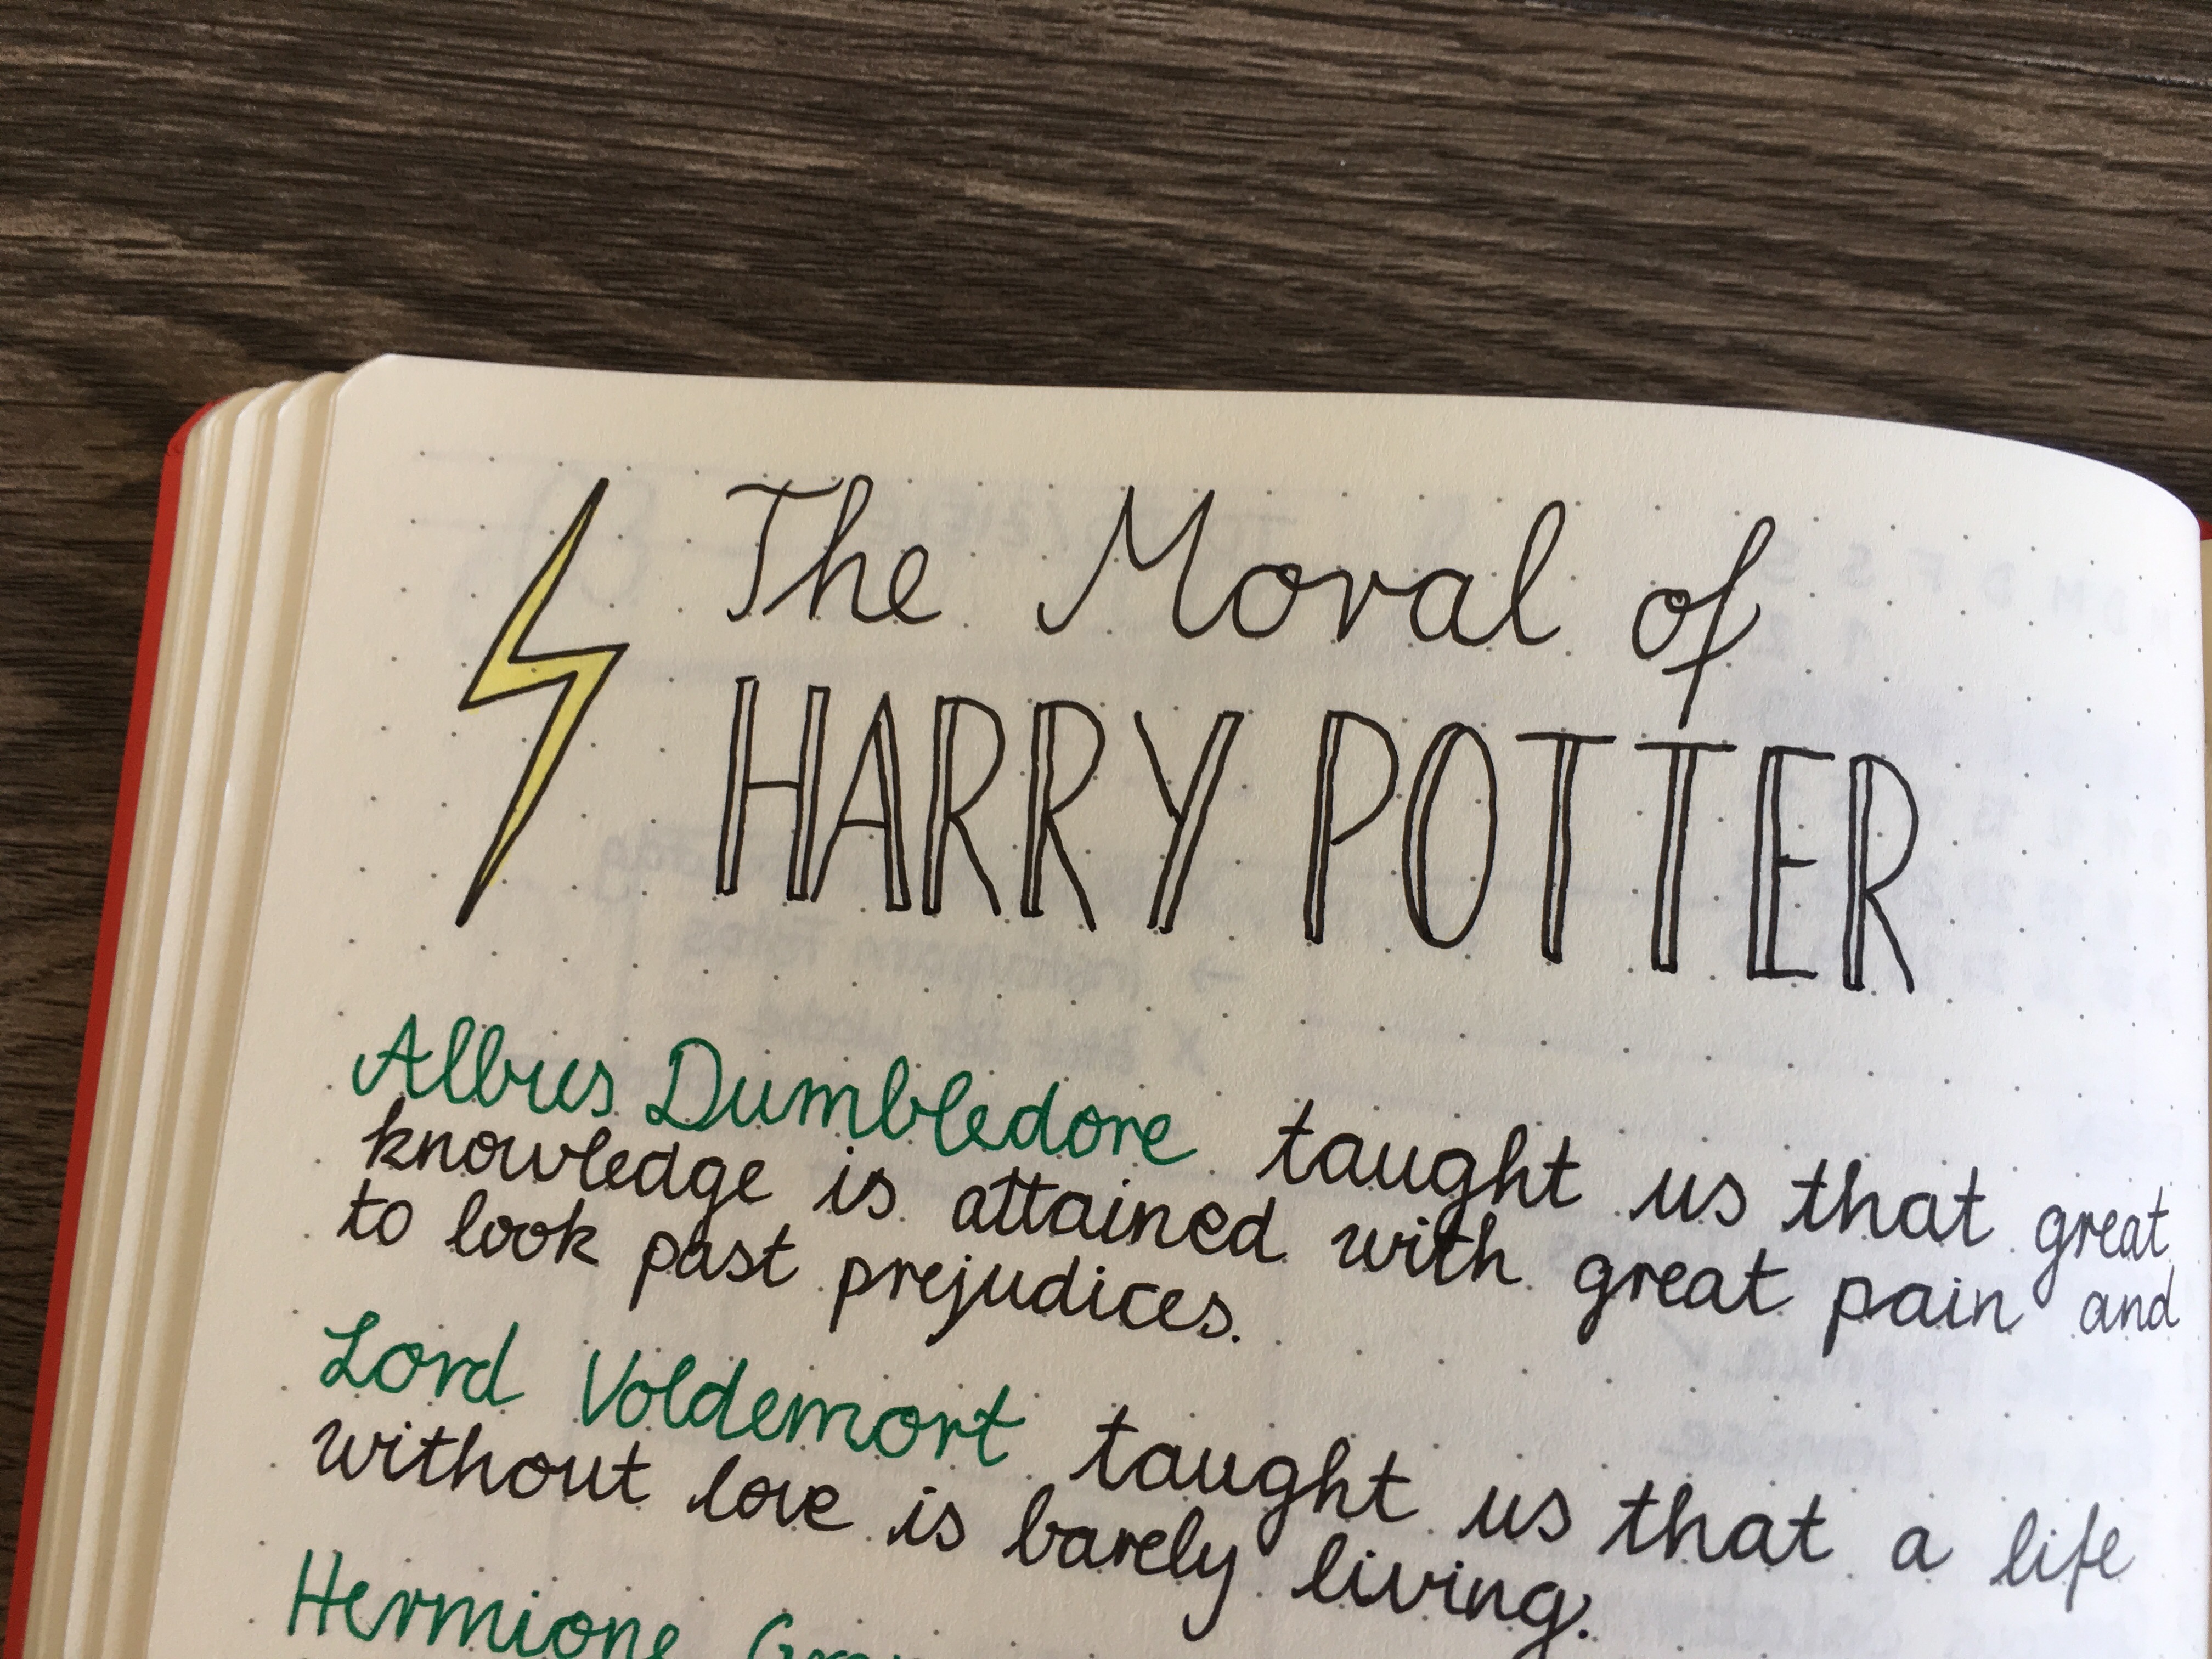 The Moral of
HARRY POTTER
Albus Dumbledore taught us that great
knowledge is attained with great pain and
to look past prejudices.
Lord Voldemort taught us that a life
without love is barely living.
Hermione